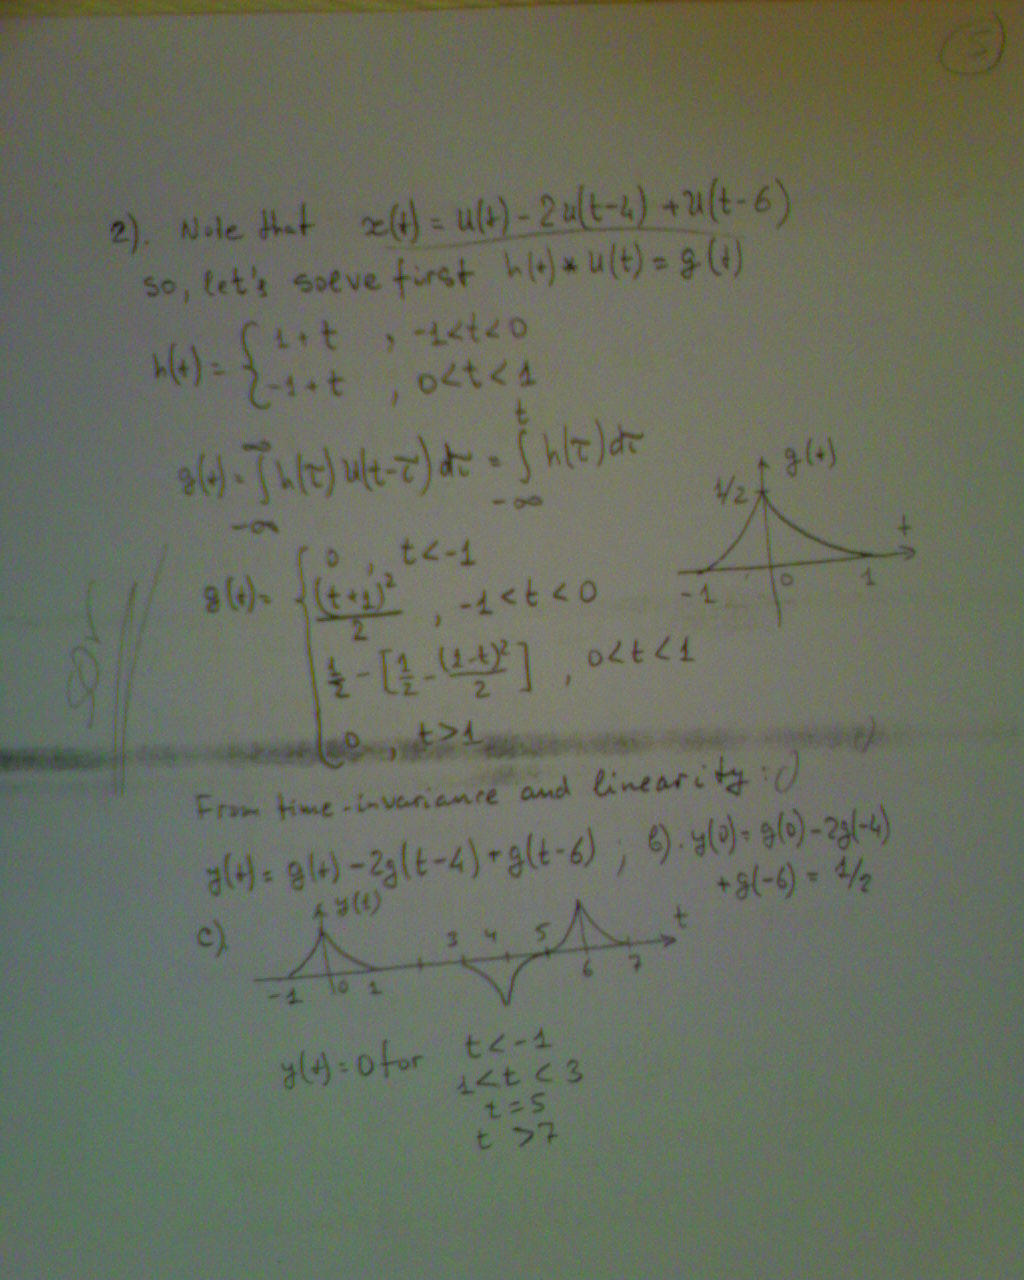 5
2). Note that x(t) = u(t) - 2u(t-4) + u(t-6)
so, let's solve first h(t) * u(t) = g(t)
h(t) = { 1+t , -1<t<0
-1+t , 0<t<1
g(t) = ∫_{-∞}^{∞} h(τ) u(t-τ) dτ = ∫_{-∞}^{t} h(τ) dτ
g(t)
1/2
t
-1 0 1
g(t) = { 0 , t<-1
(t+1)²/2 , -1<t<0
1/2 - [1/2 - (1-t)²/2] , 0<t<1
0 , t>1
Or
From time-invariance and linearity :)
y(t) = g(t) - 2g(t-4) + g(t-6) ; b). y(0) = g(0) - 2g(-4)
+ g(-6) = 1/2
c). y(t)
t
-1 0 1 3 4 5 6 7
y(t) = 0 for t < -1
1 < t < 3
t = 5
t > 7